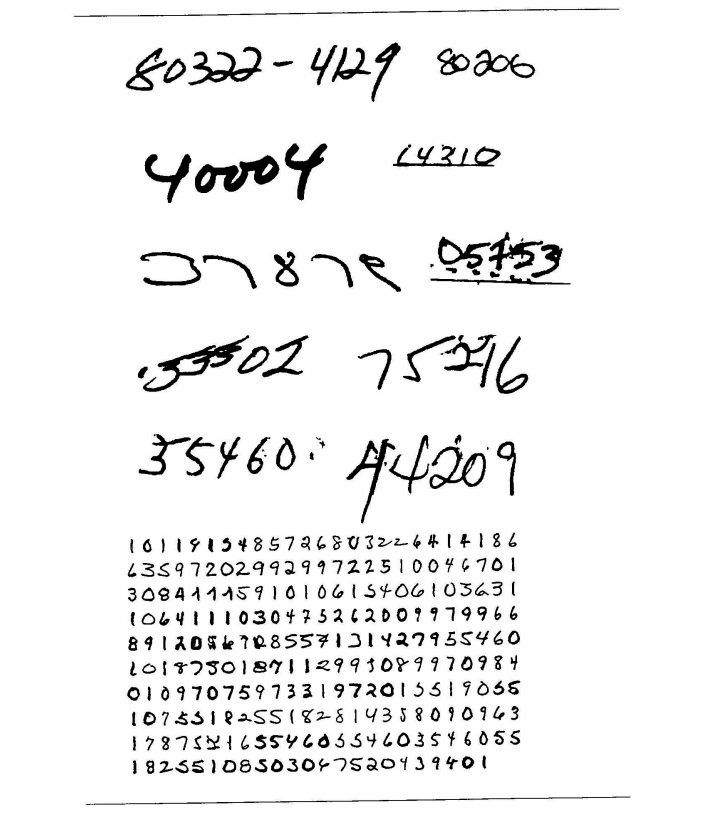 80322-4129 80206
40004 14310
37878 05753
.33502 75216
35460 44209
1011915485726803226414186
6359720299299722510046701
3084111591010615406103631
1064111030475262009979966
8912056708557131427955460
1018730187112993089970984
0109707597331972015519055
1075518255182814358090963
1787521655460354603546055
18255108503047520439401